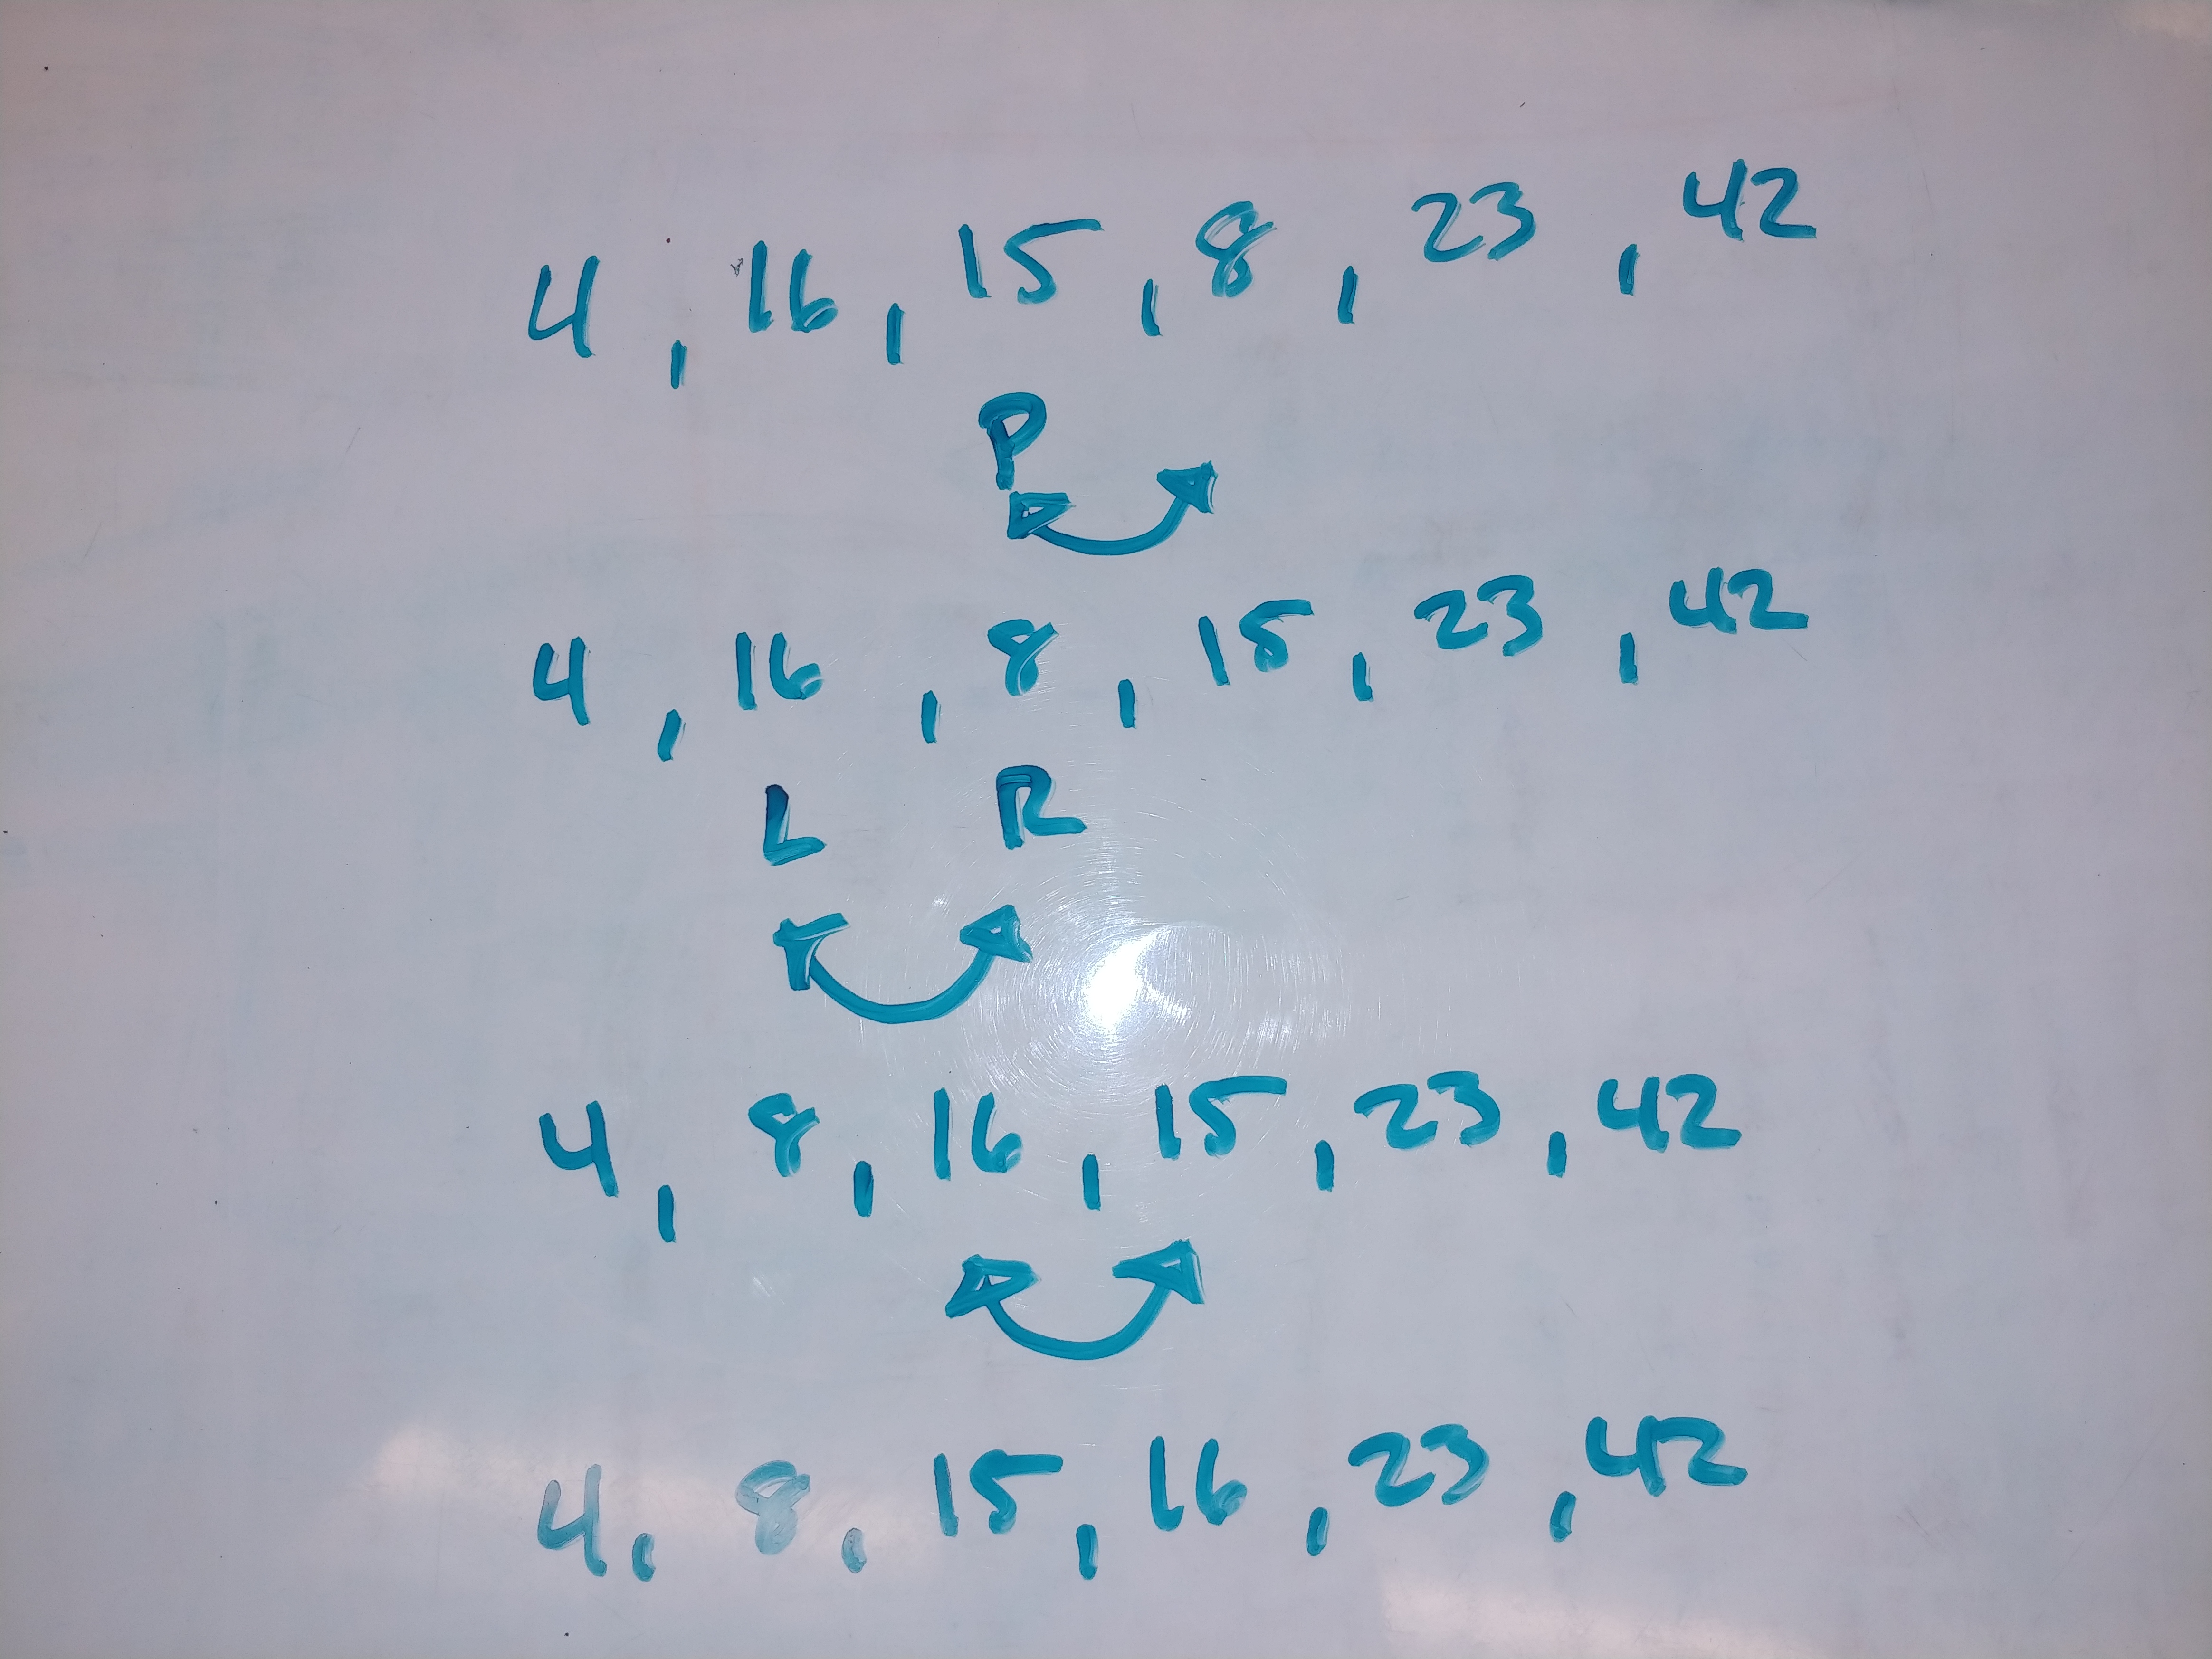 4, 16, 15, 8, 23, 42
P
4, 16, 8, 15, 23, 42
L R
4, 8, 16, 15, 23, 42
4, 8, 15, 16, 23, 42